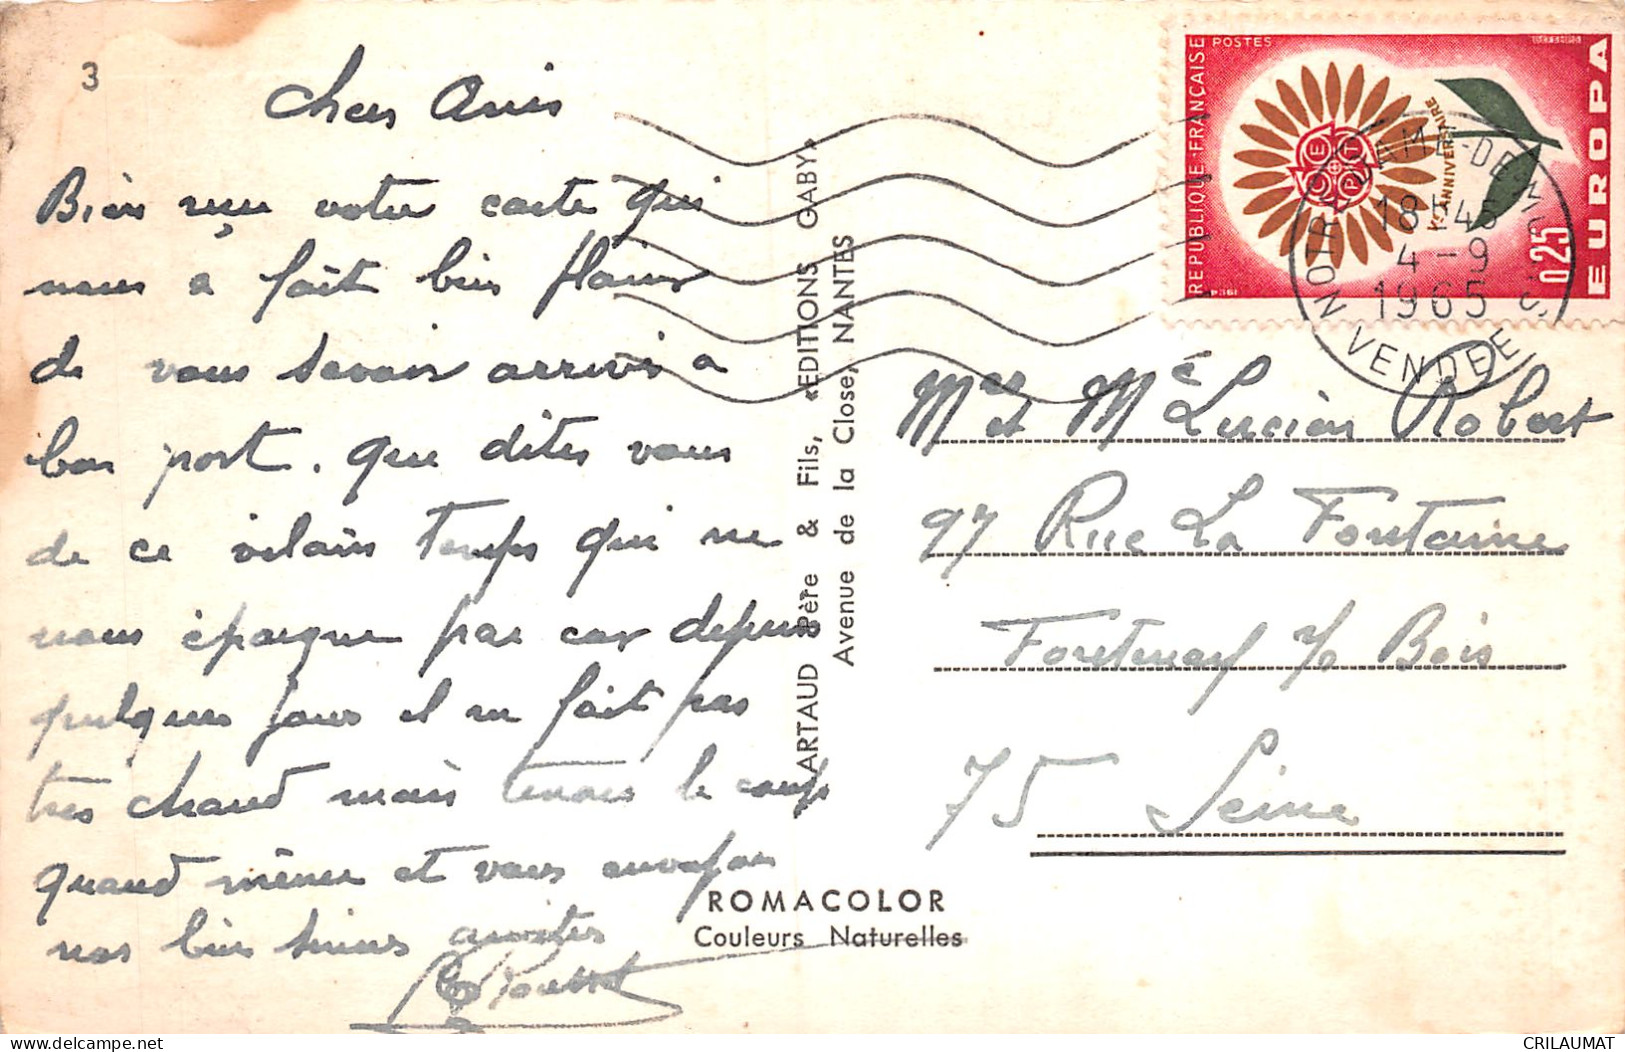 3
Chers Amis
Bien reçu votre carte qui
nous a fait bien plaisir
de vous savoir arrivés a
bon port. que dites vous
de ce vilain temps qui ne
nous épargne pas car depuis
quelques jours il ne fait pas
très chaud mais tenons le coup
quand même et vous envoyons
nos bien sincères amitiés
ARTAUD Père & Fils, «EDITIONS GABY»
Avenue de la Close, NANTES
ROMACOLOR
Couleurs Naturelles
REPUBLIQUE FRANÇAISE
POSTES
EUROPA
Ve ANNIVERSAIRE
CEPT
0,25
1964
NOTRE-DAME-DE-MONTS
18H45
4-9
1965
VENDEE
Mr et Me Lucien Robert
97 Rue La Fontaine
Fontenay s/s Bois
75 Seine
CRILAUMAT